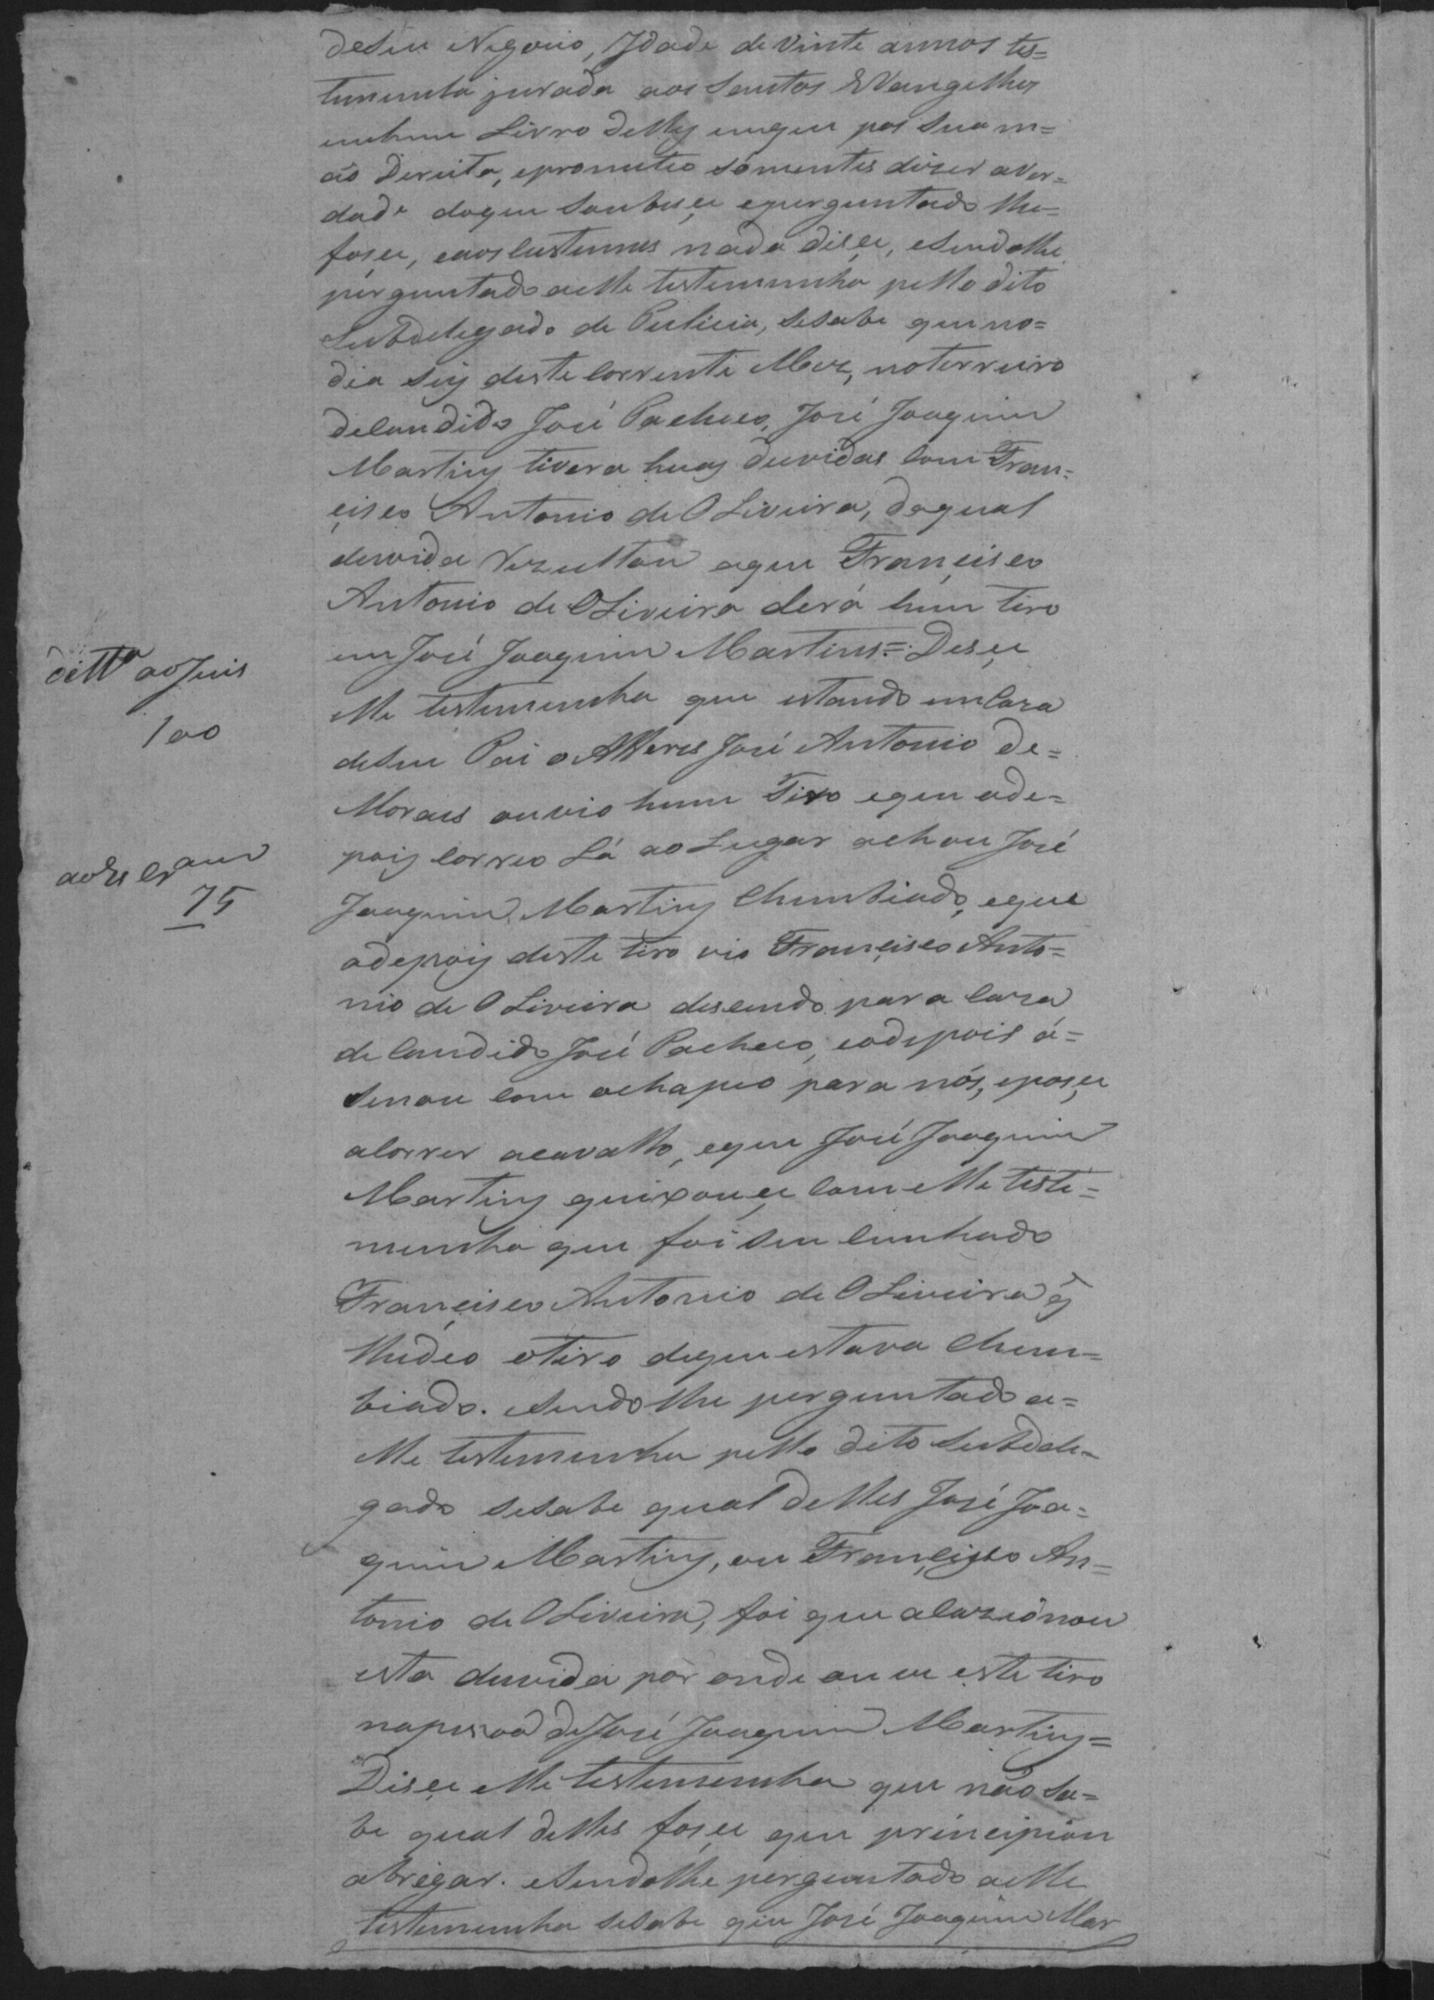 deseu Negocio, Idade de vinte annos tes=
temunha jurada aos Santos EVangelhos
emhum Livro delles emque pos sua m=
ão Dereita, eprometeo sómentes dizer aver=
dade doque Soubeçe eperguntado lhe=
foçe, eaos Custumes nada diçe, eSendolhe
perguntado aelle testemunha pello dito
Subdelegado de Pulicia, seSabe queno=
dia seis deste Corrente Mez, noterreiro
deCandido José Pacheco, José Joaquim
Martins tivera huas duvidas Com Fran=
çisco Antonio de OLiveira, daqual
duvida Rezultou aque Françisco
Antonio de OLiveira derá hum tiro
em José Joaquim Martins = Deçe
elle testemunha que estando emCaza
deseu Pai o Alferes José Antonio de=
Morais ouvio hum Tiro eque ade=
pois Correo Lá ao Lugar achou José
Joaquim Martins Chumbiado, eque
adepois deste tiro vio Françisco Anto=
nio de OLiveira desendo para Caza
de Candido José Pacheco, eadepois á=
Senou Com ochapeo para nós, eposçe
aCorrer acavallo, eque José Joaquim
Martins queixouçe Com elle teste=
munha que foi seu Cunhado
Françisco Antonio de OLiveira q̃
lhedeo otiro deque estava Chum=
biado. eSendolhe perguntado a e=
lle testemunha pello dito Subdele=
gado seSabe qual delles José Joa=
quim Martins, ou Françisco An=
tonio de OLiveira, foi que aCazionou
esta duvida por onde ouve este tiro
napesoa deJosé Joaquim Martins =
Diçe elle testemunha que não Sa=
be qual delles foçe que principiou
abrigar. eSendolhe perguntado aelle
testemunha seSabe que José Joaquim Mar
ditto ao Juis
100
ao Escram
75